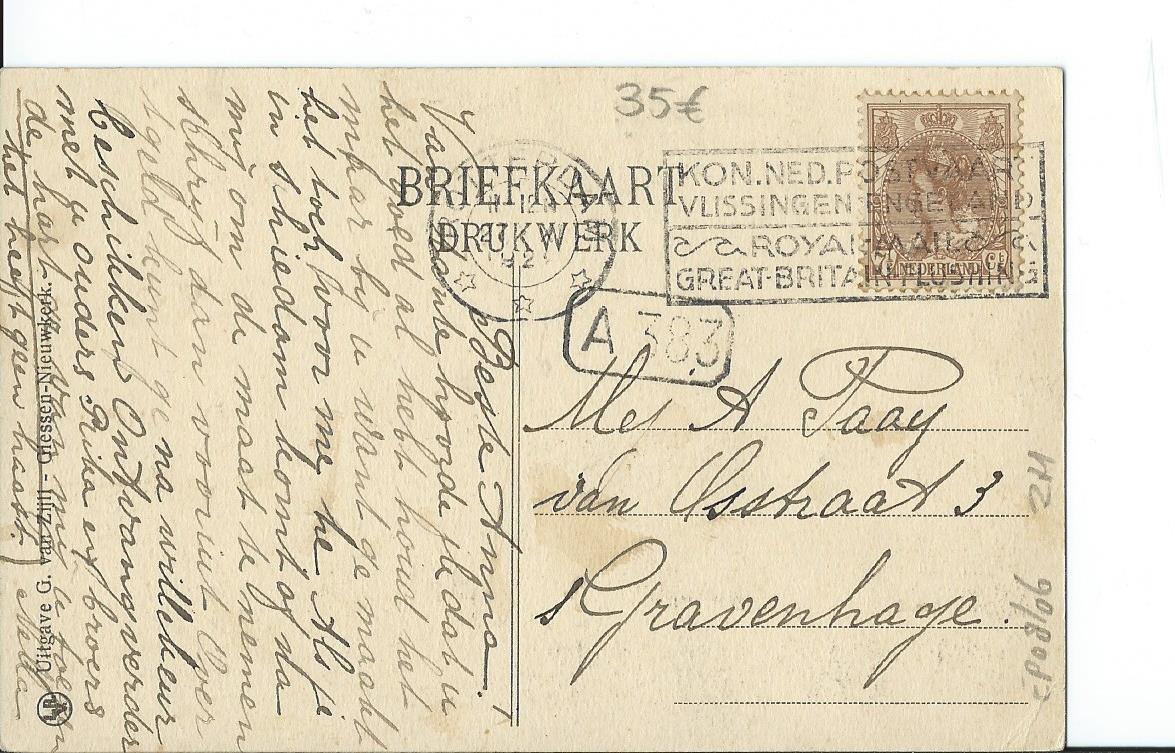 35€
BRIEFKAART
DRUKWERK
KON. NED. POSTVAART
VLISSINGEN ENGELAND
ROYAL MAIL
GREAT-BRITAIN FLUSHING
7½ NEDERLAND Ct
A 383
Mej A Taay
van Osstraat 3
s Gravenhage.
CP08/06 2H
Beste Anna.
Van Tante hoorde ik dat u
het goed al hebt houd het
maar bij u want ge maakt
het toch voor me he Als je
in Schiedam komt of da
mij om de maat te nemen
schrijf dan vooruit Over
t geld kunt ge na willekeur
beschikken Ontvang verder
met je ouders Rika en broers
de hart gr van mij u toeg
het heeft geen haast.) Nella
Uitgave G. van Zijll - Giessen-Nieuwkerk.